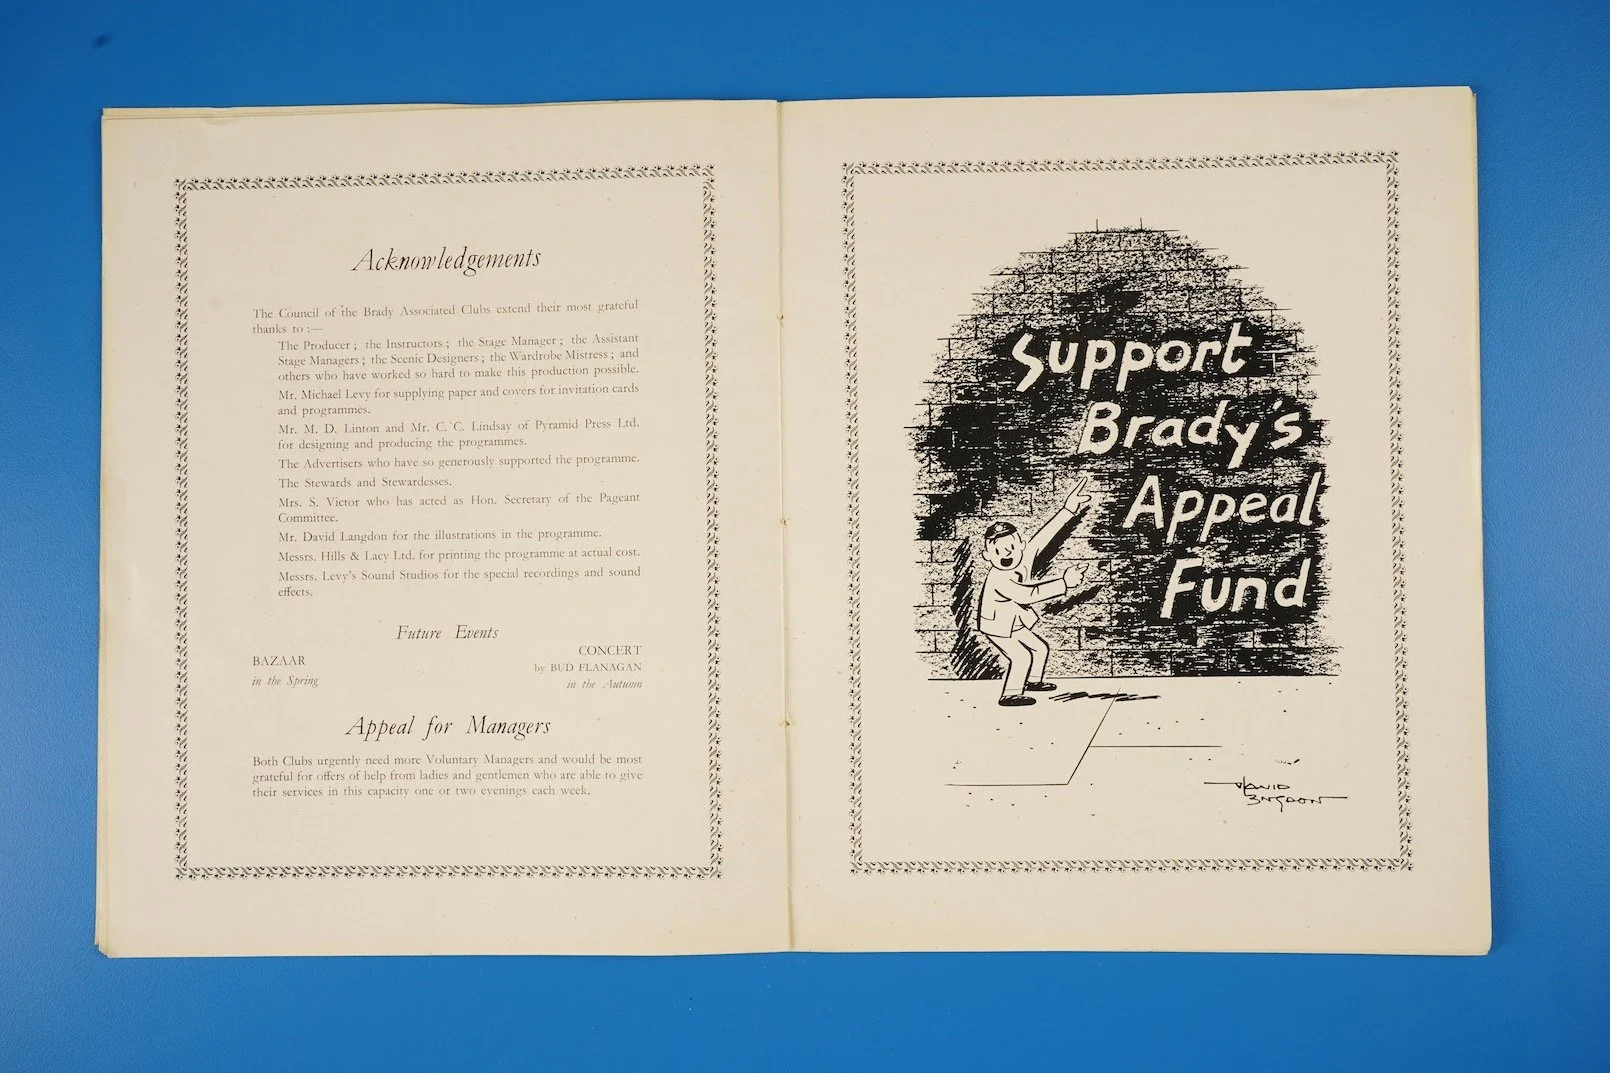 Acknowledgements
The Council of the Brady Associated Clubs extend their most grateful
thanks to :—
The Producer ; the Instructors ; the Stage Manager ; the Assistant
Stage Managers ; the Scenic Designers ; the Wardrobe Mistress ; and
others who have worked so hard to make this production possible.
Mr. Michael Levy for supplying paper and covers for invitation cards
and programmes.
Mr. M. D. Linton and Mr. C. C. Lindsay of Pyramid Press Ltd.
for designing and producing the programmes.
The Advertisers who have so generously supported the programme.
The Stewards and Stewardesses.
Mrs. S. Victor who has acted as Hon. Secretary of the Pageant
Committee.
Mr. David Langdon for the illustrations in the programme.
Messrs. Hills & Lacy Ltd. for printing the programme at actual cost.
Messrs. Levy's Sound Studios for the special recordings and sound
effects.
Future Events
BAZAAR
in the Spring
CONCERT
by BUD FLANAGAN
in the Autumn
Appeal for Managers
Both Clubs urgently need more Voluntary Managers and would be most
grateful for offers of help from ladies and gentlemen who are able to give
their services in this capacity one or two evenings each week.
Support
Brady's
Appeal
Fund
DAVID
LANGDON